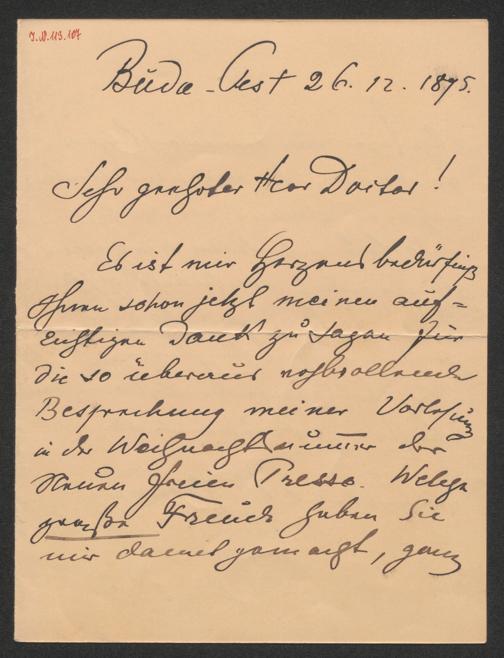 J.N. 113.107
Buda-Pest 26. 12. 1895.
Sehr geehrter Herr Doctor!
Es ist mir Herzensbedürfniß
Ihnen schon jetzt meinen auf-
richtigen Dank zu sagen für
die so überaus
Besprechung meiner Vorlesung
in der Weihnachtsnummer der
Neuen freien Presse. Welche
große Freude haben Sie
mir damit gemacht, ganz